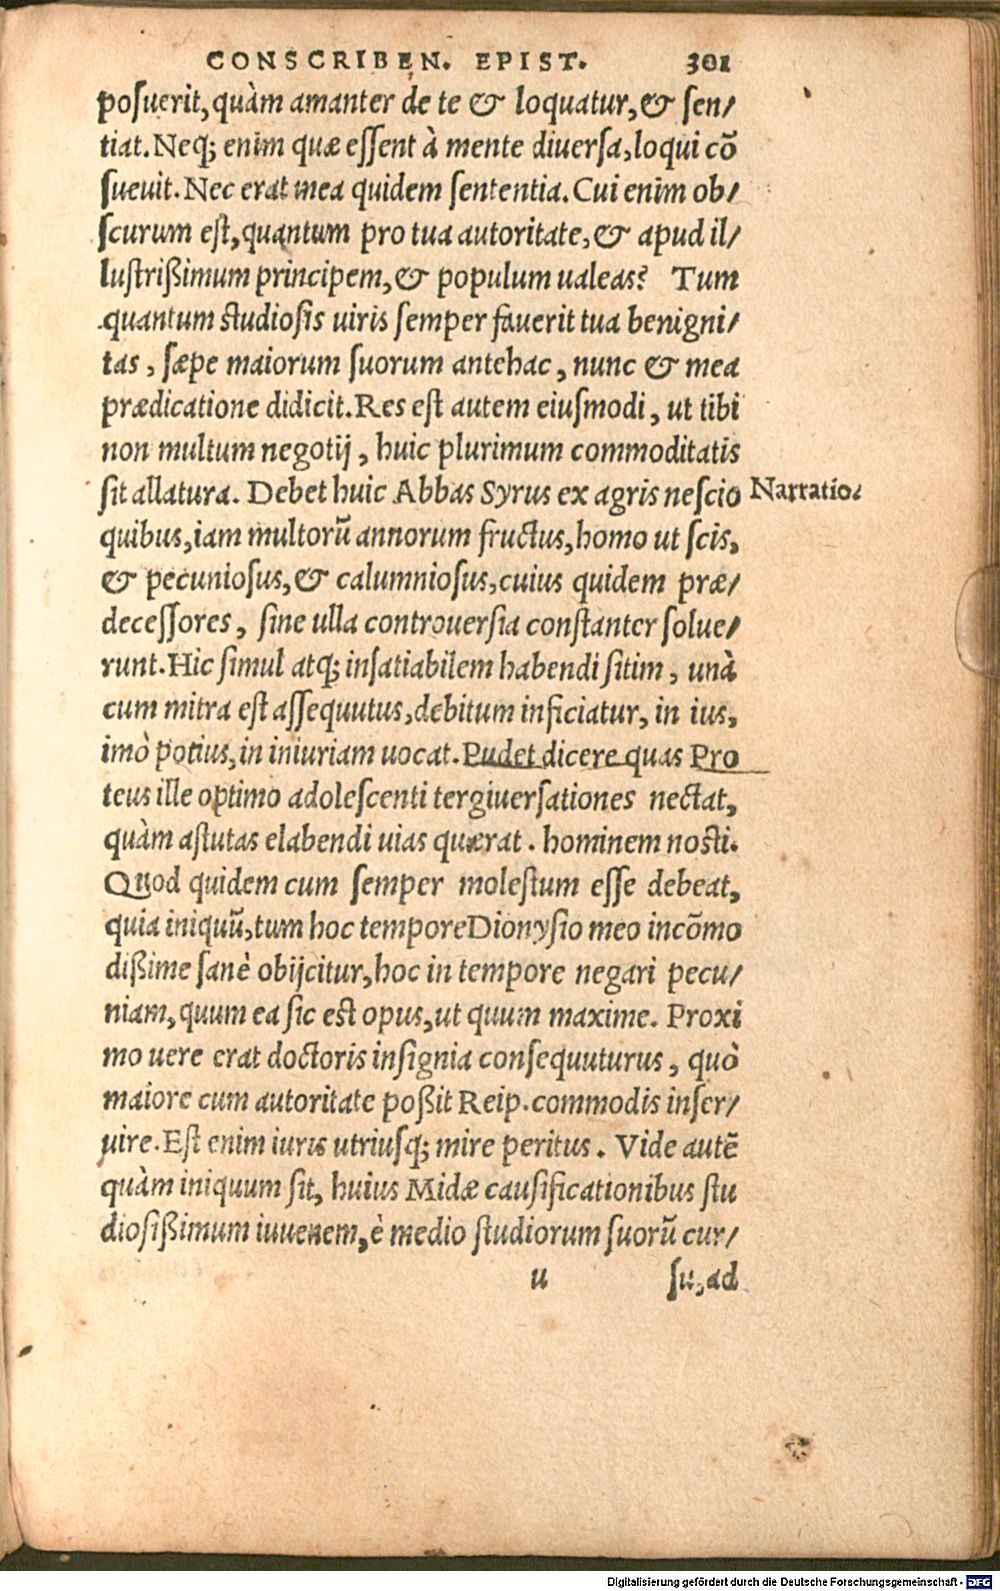 CONSCRIBEN. EPIST. 301
posuerit, quàm amanter de te & loquatur, & sen/
tiat. Neq; enim quæ essent à mente diuersa, loqui cõ
sueuit. Nec erat mea quidem sententia. Cui enim ob/
scurum est, quantum pro tua autoritate, & apud il/
lustrißimum principem, & populum ualeas? Tum
quantum studiosis uiris semper fauerit tua benigni/
tas, sæpe maiorum suorum antehac, nunc & mea
prædicatione didicit. Res est autem eiusmodi, ut tibi
non multum negotij, huic plurimum commoditatis
sit allatura. Debet huic Abbas Syrus ex agris nescio
Narratio.
quibus, iam multorũ annorum fructus, homo ut scis,
& pecuniosus, & calumniosus, cuius quidem præ/
decessores, sine ulla controuersia constanter solue/
runt. Hic simul atq; insatiabilem habendi sitim, unà
cum mitra est assequutus, debitum inficiatur, in ius,
imò potius, in iniuriam uocat. Pudet dicere quas Pro
teus ille optimo adolescenti tergiuersationes nectat,
quàm astutas elabendi uias quærat. hominem nosti.
Quod quidem cum semper molestum esse debeat,
quia iniquũ, tum hoc tempore Dionysio meo incõmo
dißime sanè obijcitur, hoc in tempore negari pecu/
niam, quum ea sic est opus, ut quum maxime. Proxi
mo uere erat doctoris insignia consequuturus, quò
maiore cum autoritate poßit Reip. commodis inser/
uire. Est enim iuris utriusq; mire peritus. Vide autẽ
quàm iniquum sit, huius Midæ causificationibus stu
diosißimum iuuenem, è medio studiorum suorũ cur/
u su, ad
Digitalisierung gefördert durch die Deutsche Forschungsgemeinschaft - DFG